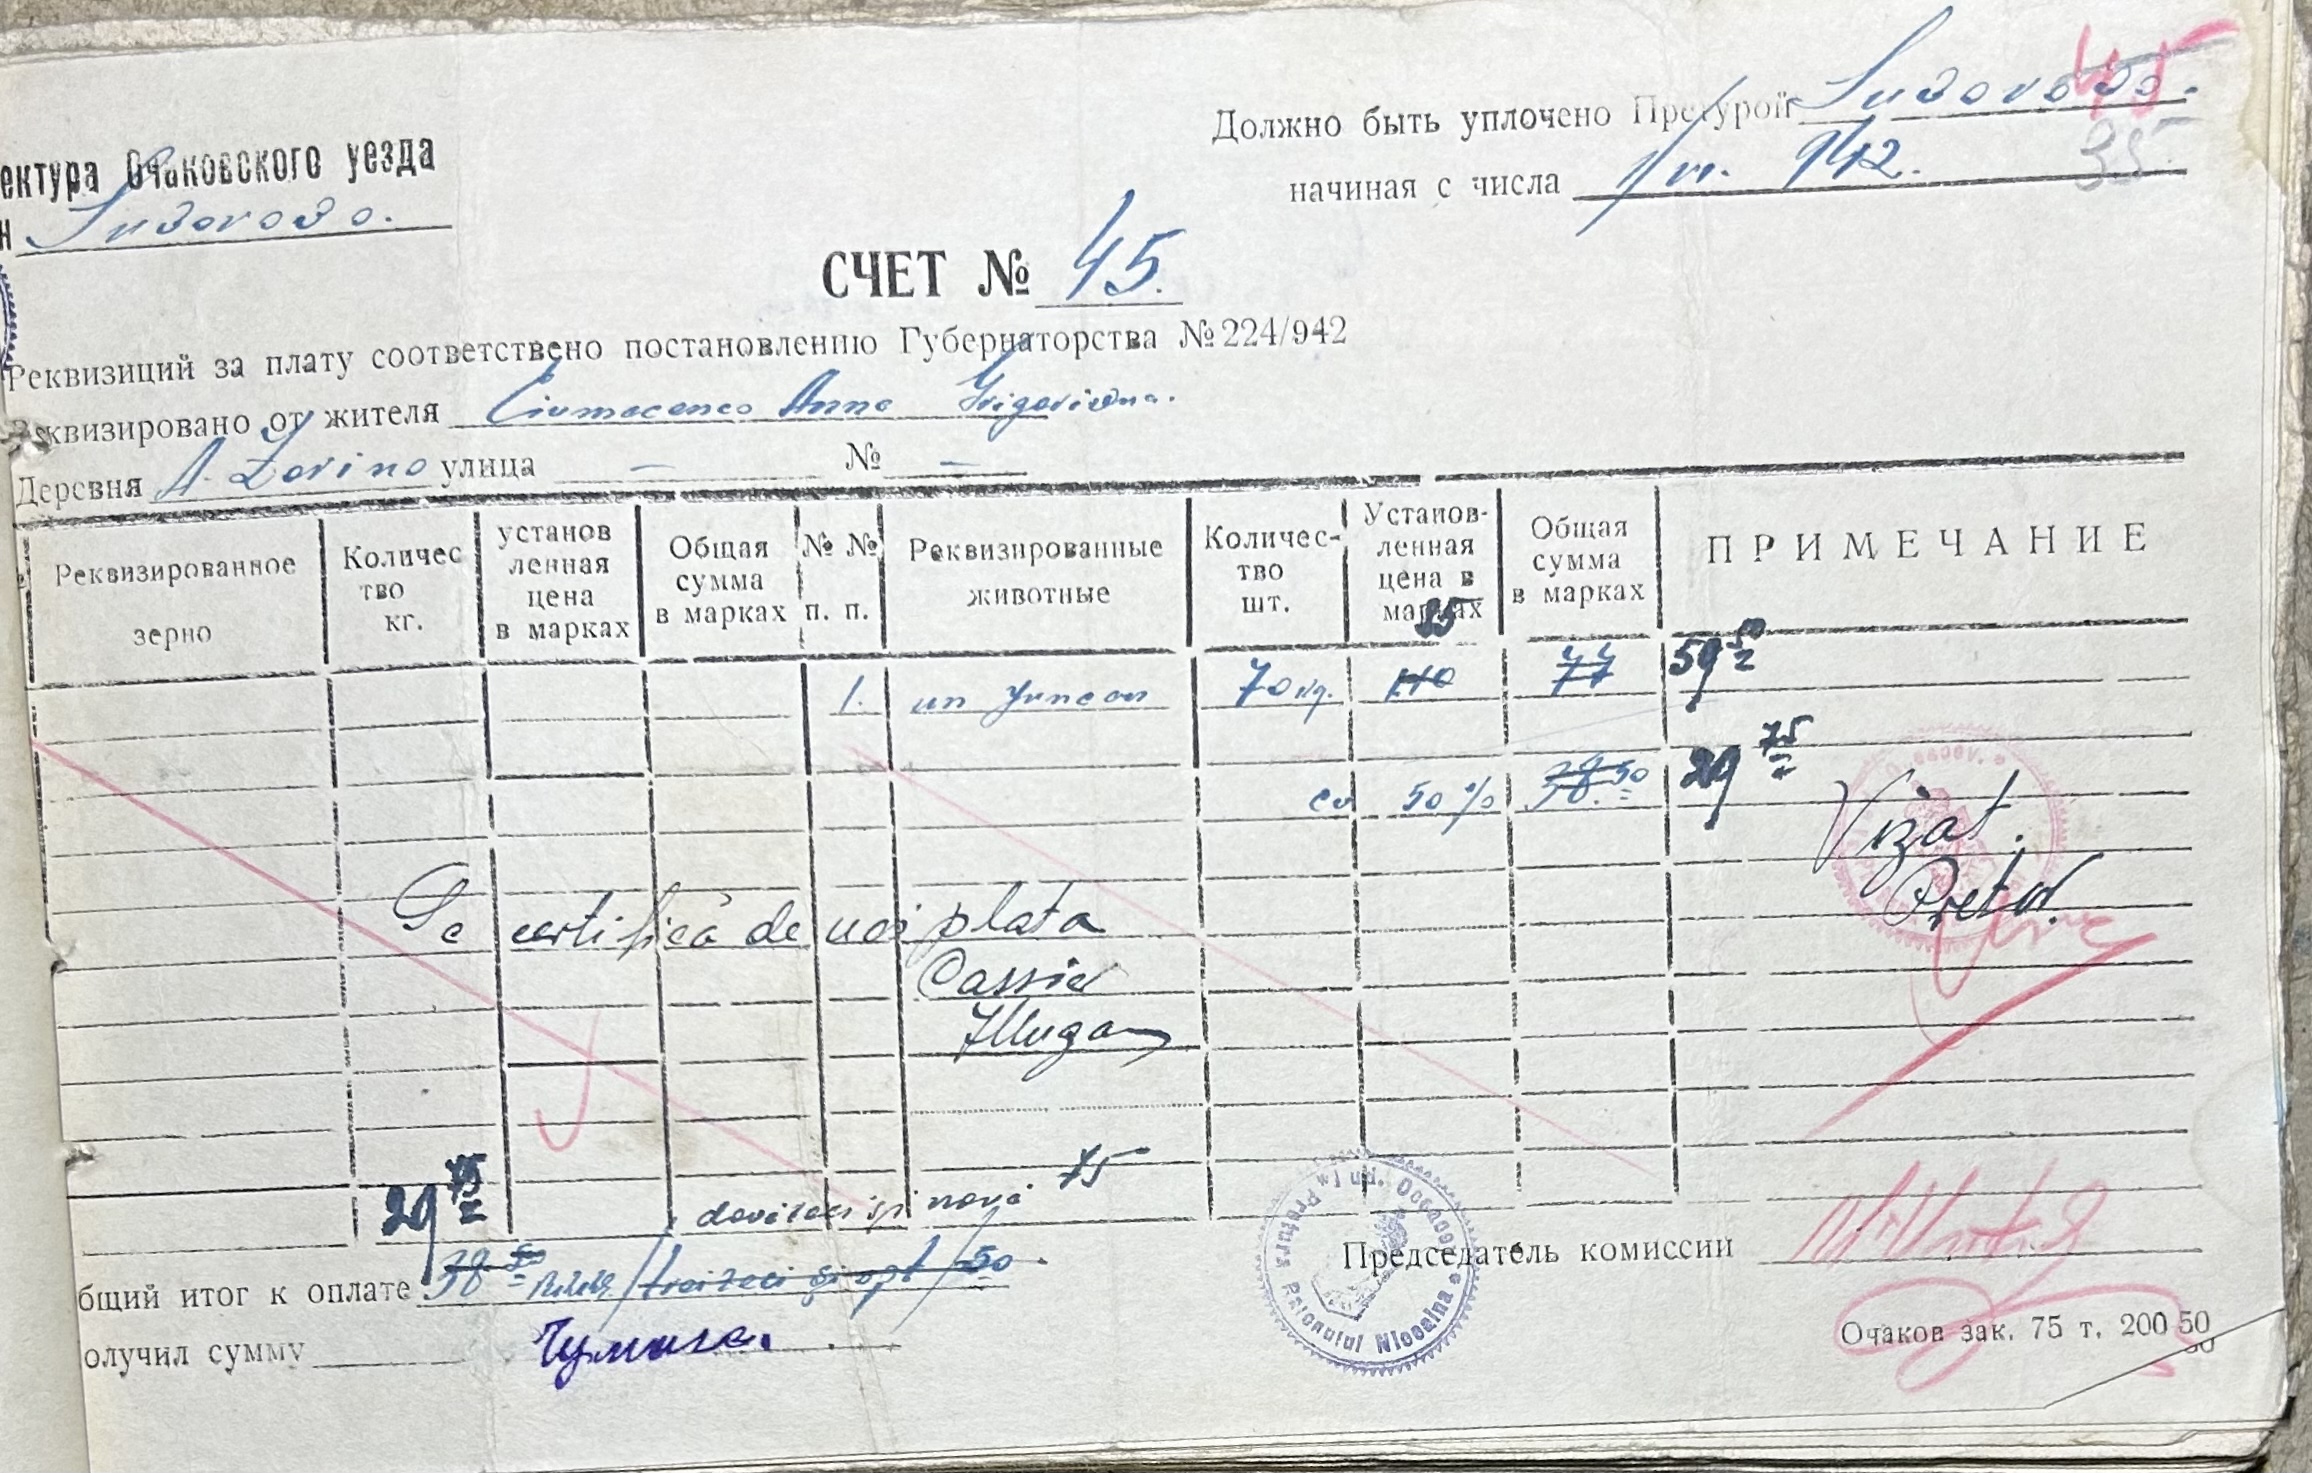 45
Должно быть уплочено Претурой Suvorovo.
ектура Очаковского уезда
начиная с числа 1/VI. 942.
35
н Suvorovo.
СЧЕТ № 45.
Реквизиций за плату соответствено постановлению Губернаторства №224/942
Реквизировано от жителя Ciumacenco Anna Grigorievna.
Деревня A. Zorino улица — № —
Реквизированное зерно
Количество кг.
установленная цена в марках
Общая сумма в марках
№ № п. п.
Реквизированные животные
Количес-тво шт.
Установ-ленная цена в марках
Общая сумма в марках
ПРИМЕЧАНИЕ
85
1. un juncan 70 kg. 110 77 59 50
cu 50 % 38.50 29 75
Vizat.
Pretor.
Se certifică de noi plata
Cassier
29 75 douăzeci și nouă 75
бщий итог к оплате 38 50 /treizeci și opt/ 50
Председатель комиссии
Pretura Raionului Nicoaina
олучил сумму
Очаков зак. 75 т. 200 50
50